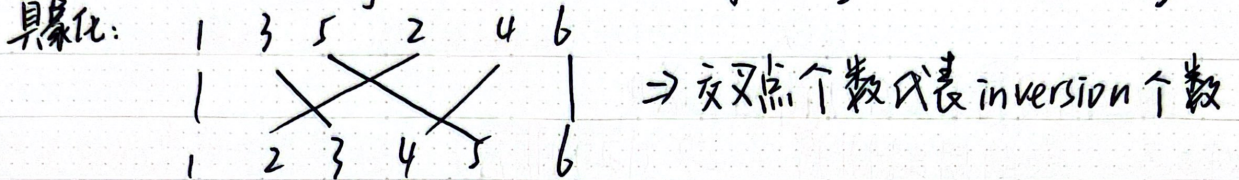 具象化： 1 3 5 2 4 6
⇒ 交叉点个数代表 inversion 个数
1 2 3 4 5 6